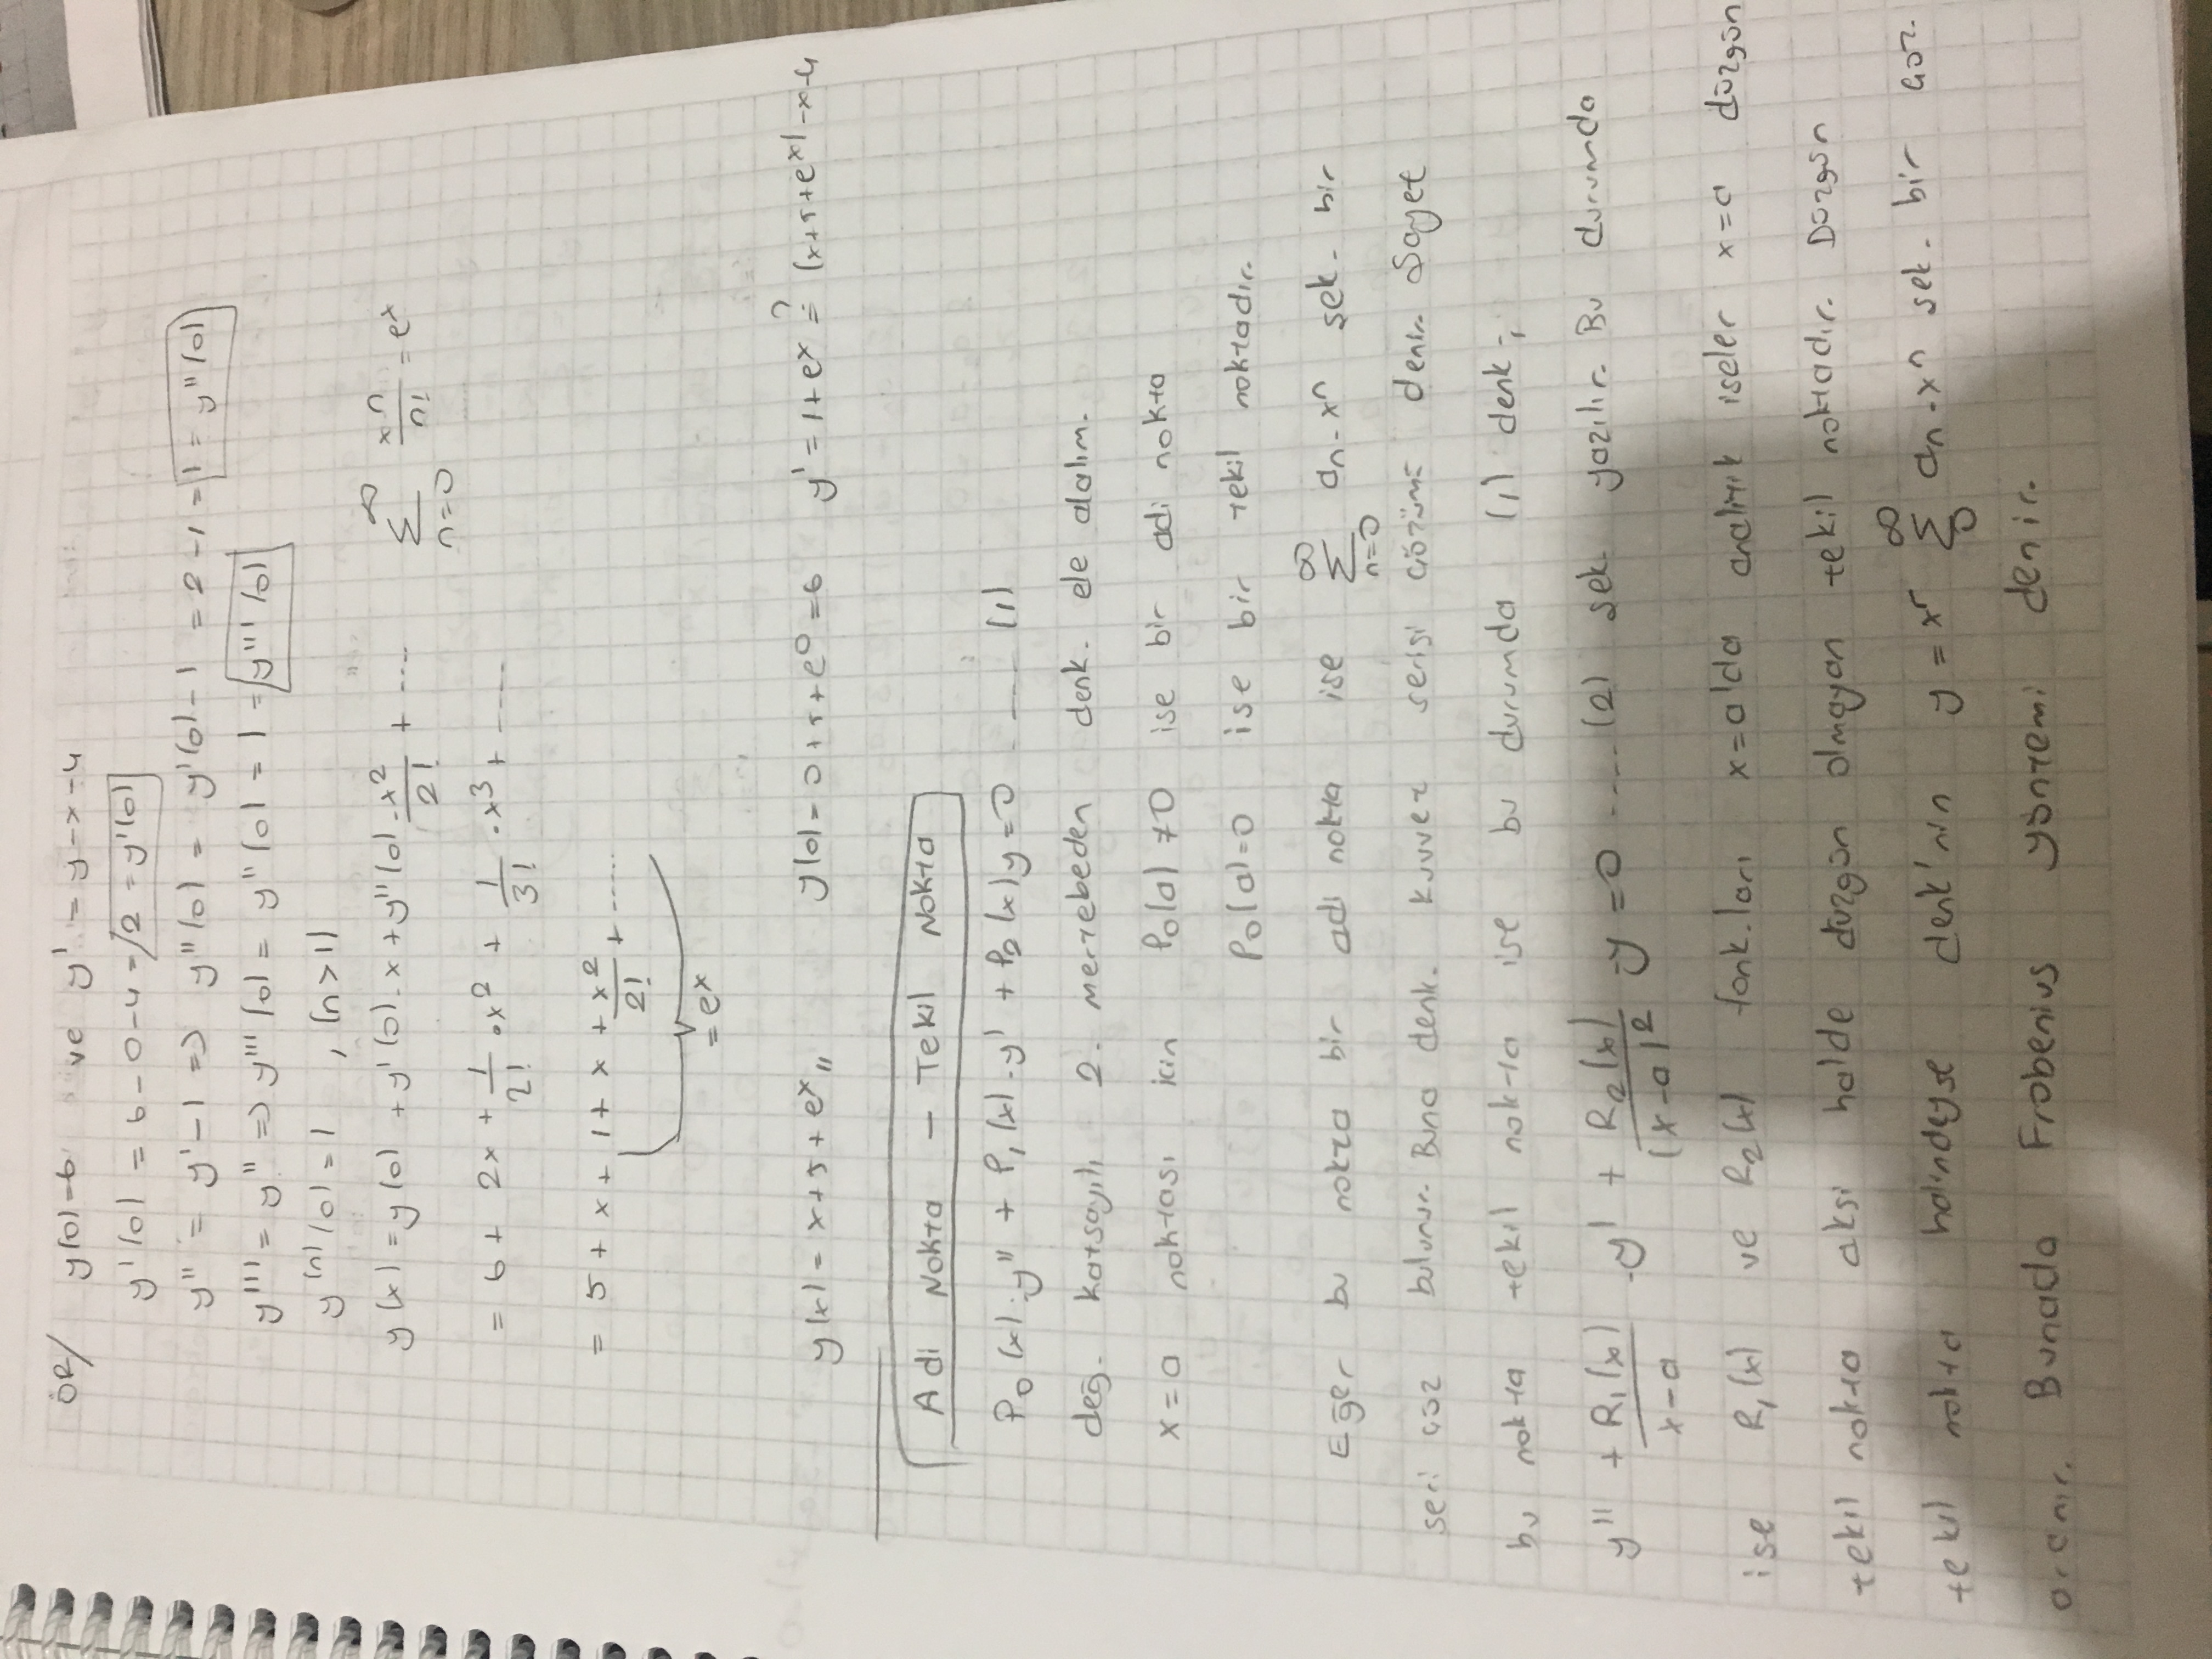 ÖR/ y(0)=6 ve y' = y-x-4
y'(0) = 6-0-4 = 2 = y'(0)
y'' = y'-1 => y''(0) = y'(0)-1 = 2-1 = 1 = y''(0)
y''' = y'' => y'''(0) = y''(0) = 1 = y'''(0)
y^(n)(0) = 1 , (n>1)
y(x) = y(0) + y'(0).x + y''(0).x²/2! + .... ∑_{n=0}^{∞} xⁿ/n! = eˣ
= 6 + 2x + 1/2! . x² + 1/3! . x³ + .....
= 5 + x + 1 + x + x²/2! + ......
= eˣ
y(x) = x+5+eˣ,, y(0) = 0+5+e⁰ = 6 y' = 1+eˣ ?= (x+5+eˣ)-x-4
Adi Nokta - Tekil Nokta
P₀(x).y'' + P₁(x).y' + P₂(x)y = 0 ...... (1)
değ. katsayılı 2. mertebeden denk. ele alalım.
x=a noktası icin P₀(a) ≠ 0 ise bir adi nokta
P₀(a)=0 ise bir tekil noktadır.
Eğer bu nokta bir adi nokta ise ∑_{n=0}^{∞} aₙ.xⁿ şek. bir
seri çöz bulunur. Buna denk. kuvvet serisi çözümü denir. Şayet
bu nokta tekil nokta ise bu durumda (1) denk;
y'' + R₁(x)/(x-a) .y' + R₂(x)/(x-a)² .y = 0 .....(2) şek. yazılır. Bu durumda
ise R₁(x) ve R₂(x) fonk.ları x=a'da analitik iseler x=a düzgün
tekil nokta aksi halde düzgün olmayan tekil noktadır. Düzgün
tekil nokta halindeyse denk'nin y = xʳ ∑_{0}^{∞} aₙ.xⁿ şek. bir çöz.
aranır. Bunada Frobenius yöntemi denir.